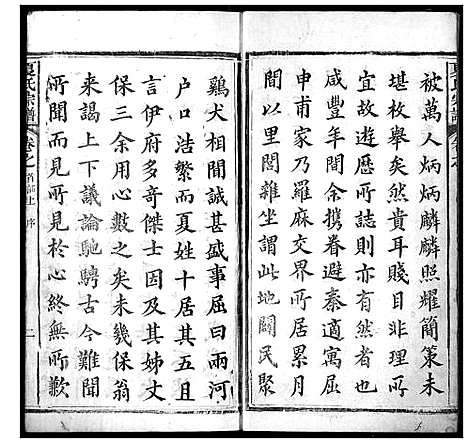 被萬人炳炳麟麟照耀簡策未
堪枚舉矣然貴耳賤目非理所
宜故遊歷所誌則亦宜然者也
咸豐年間余携眷避秦適寓屈
申甫家乃羅麻交界所居累月
間以里閈雜坐謂此地闢民聚
夏氏宗譜
卷之首
鷄犬相聞誠甚盛事屈曰兩河
户口浩繁而夏姓十居其五且
言伊府多奇傑士因及其姊丈
保三余用心數之矣未幾保翁
来謁上下議論馳騁古今難聞
所聞而見所見於心終無所歉
夏氏宗譜
卷之首
序
二